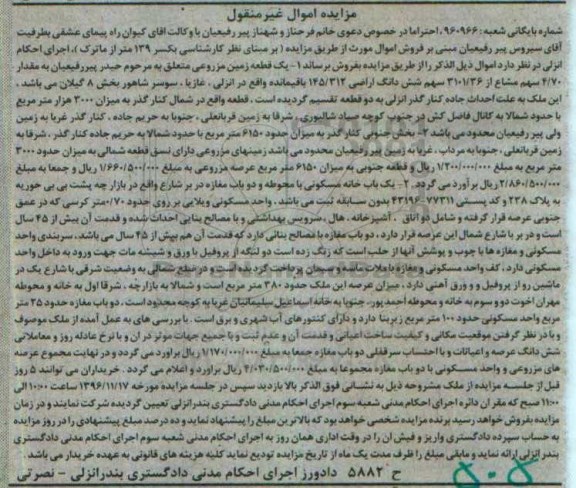 مزایده اموال غیرمنقول
شماره بایگانی شعبه: ۹۶۰۹۶۶ احتراما در خصوص دعوی خانم فرحناز و شهناز پیر رفیعیان با وکالت اقای کیوان راه پیمای عشقی بطرفیت
آقای سیروس پیر رفیعیان مبنی بر فروش اموال موروث از طریق مزایده (بر مبنای نظر کارشناسی بکسر ۱۳۹ متر از ماترک)، اجرای احکام
انزلی در نظر دارد اموال ذیل الذکر را از طریق مزایده بفروش برساند ۱- یک قطعه زمین مزروعی متعلق به مرحوم حیدر پیررفیعیان به مقدار
۴/۷۰ سهم مشاع از ۳۱۰۱/۳۶ سهم شش دانگ اراضی ۱۴۵/۳۱۲ باقیمانده واقع در انزلی، غازیا، سوسر شاهور بخش ۸ گیلان می باشد.
این ملک به علت احداث جاده کنار گذر انزلی به دو قطعه تقسیم گردیده است. قطعه واقع در شمال کنار گذر به میزان ۳۰۰۰ هزار متر مربع
با حدود شمالا به کانال فاصل کش در جنوب کوچه صیاد شالیوری، شرقا به زمین قربانعلی، جنوبا به حریم جاده، کنار گذر غربا به زمین
ولی پیر رفیعیان محدود می باشد ۲- بخش جنوبی کنار گذر به میزان حدود ۶۱۵۰ متر مربع با حدود شمالا به حریم جاده کنار گذر، شرقا به
زمین قربانعلی، جنوبا به مرداب، غربا به زمین پیر رفیعیان محدود می باشد زمینهای مزروعی دارای نسق قطعه شمالی به میزان حدود ۳۰۰۰
متر مربع به مبلغ ۱/۲۰۰/۰۰۰/۰۰۰ ریال و قطعه جنوبی به میزان ۶۱۵۰ متر مربع عرصه مزروعی به مبلغ ۱/۶۶۰/۵۰۰/۰۰۰ ریال و جمعا به مبلغ
۲/۸۶۰/۵۰۰/۰۰۰ ریال برآورد می گردد. ۲- یک باب خانه مسکونی با محوطه و دو باب مغازه در بر شارع واقع در بازار چه پشت بی بی حوریه
به پلاک ۲۳۸ و کد پستی ۷۷۳۱۱-۴۳۱۹۶ بدون سابقه ثبت می باشد. واحد مسکونی ویلایی بر روی حدود ۰/۷۰ متر کرسی که در عمق
جنوبی عرصه قرار گرفته و شامل دو اتاق، آشپزخانه، هال، سرویس بهداشتی و با مصالح بنایی احداث شده و قدمت آن بیش از ۴۵ سال
است و در بر با شارع شمال این عرصه قرار دارد، دو باب مغازه با مصالح بنائی دارد که قدمت آن هم بیش از ۴۵ سال می باشد، سربندی واحد
مسکونی و مغازه ها با چوب و پوشش آنها از حلب است که زنگ زده است دو لنگه از پروفیل با ورق و شیشه مات جهت ورود به داخل واحد
مسکونی دارد، کف واحد مسکونی و مغازه با ملات ماسه و سیمان پرداخت گردیده است و در ضلع شمالی به وضعیت شرقی با شارع یک در
ماشین رو از پروفیل و ورق آهنی دارد، میزان عرصه این ملک حدود ۳۸۰ متر مربع است و شمالا به بازارچه، شرقا اول به خانه و محوطه
مهران اخوت دو و سوم به خانه و محوطه احمد پور، جنوبا به خانه اسماعیل سلیمانیان غربا به کوچه محدود است. دو باب مغازه حدود ۲۵ متر
مربع واحد مسکونی حدود ۱۰۰ متر مربع زیربنا دارد و دارای کنتورهای آب شهری و برق است. با بررسی های به عمل آمده از ملک موصوف
و با در نظر گرفتن موقعیت مکانی و کیفیت ساخت اعیانی و قدمت آن و عدم ثبت و با جمیع جهات موثر در آن و با نرخ عادله روز و معاملاتی
شش دانگ عرصه و اعیانات و با احتساب سرقفلی دو باب مغازه جمعا به مبلغ ۱/۱۷۰/۰۰۰/۰۰۰ ریال برآورد می گردد و در نهایت مجموع عرصه
های مزروعی و واحد مسکونی با دو باب مغازه مجموعا به مبلغ ۴/۰۳۰/۵۰۰/۰۰۰ ریال برآورد و اعلام می گردد. خریداران می توانند ۵ روز
قبل از جلسه مزایده از ملک مشروحه ذیل به نشانی فوق الذکر بالا بازدید سپس در جلسه مزایده مورخه ۱۳۹۶/۱۱/۱۷ ساعت ۱۰:۰۰ الی
۱۱:۰۰ صبح که مقر ان دائره اجرای احکام مدنی شعبه سوم اجرای احکام مدنی دادگستری بندرانزلی تعیین گردیده شرکت نمایند و در زمان
مزایده بفروش خواهد رسید برنده مزایده شخصی خواهد بود که بالاترین مبلغ را پیشنهاد نماید و ده درصد مبلغ پیشنهادی را در روز مزایده
به حساب سپرده دادگستری واریز و فیش ان را در وقت اداری همان روز به اجرای احکام مدنی شعبه سوم اجرای احکام مدنی دادگستری
بندر انزلی ارائه نماید و مابقی مبلغ را ظرف مدت یک ماه از تاریخ مزایده تودیع نماید کلیه هزینه های قانونی به عهده خریدار می باشد
ح ۵۸۸۲ دادورز اجرای احکام مدنی دادگستری بندرانزلی - نصرتی